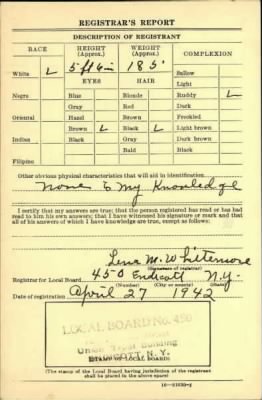 REGISTRAR'S REPORT
DESCRIPTION OF REGISTRANT
RACE HEIGHT (Approx.) WEIGHT (Approx.) COMPLEXION
White ✓ 5 ft 6 in 185 Sallow
EYES HAIR Light
Negro Blue Blonde Ruddy ✓
Gray Red Dark
Oriental Hazel Brown Freckled
Brown ✓ Black ✓ Light brown
Indian Black Gray Dark brown
Bald Black
Filipino
Other obvious physical characteristics that will aid in identification
None to my Knowledge
I certify that my answers are true; that the person registered has read or has had
read to him his own answers; that I have witnessed his signature or mark and that
all of his answers of which I have knowledge are true, except as follows:
Lena M. Whitemore
(Signature of registrar)
Registrar for Local Board 450 Endicott N.Y.
(Number) (City or county) (State)
Date of registration April 27 1942
LOCAL BOARD No. 450
Building
ENDICOTT, N.Y.
(STAMP OF LOCAL BOARD)
(The stamp of the Local Board having jurisdiction of the registrant
shall be placed in the above space)